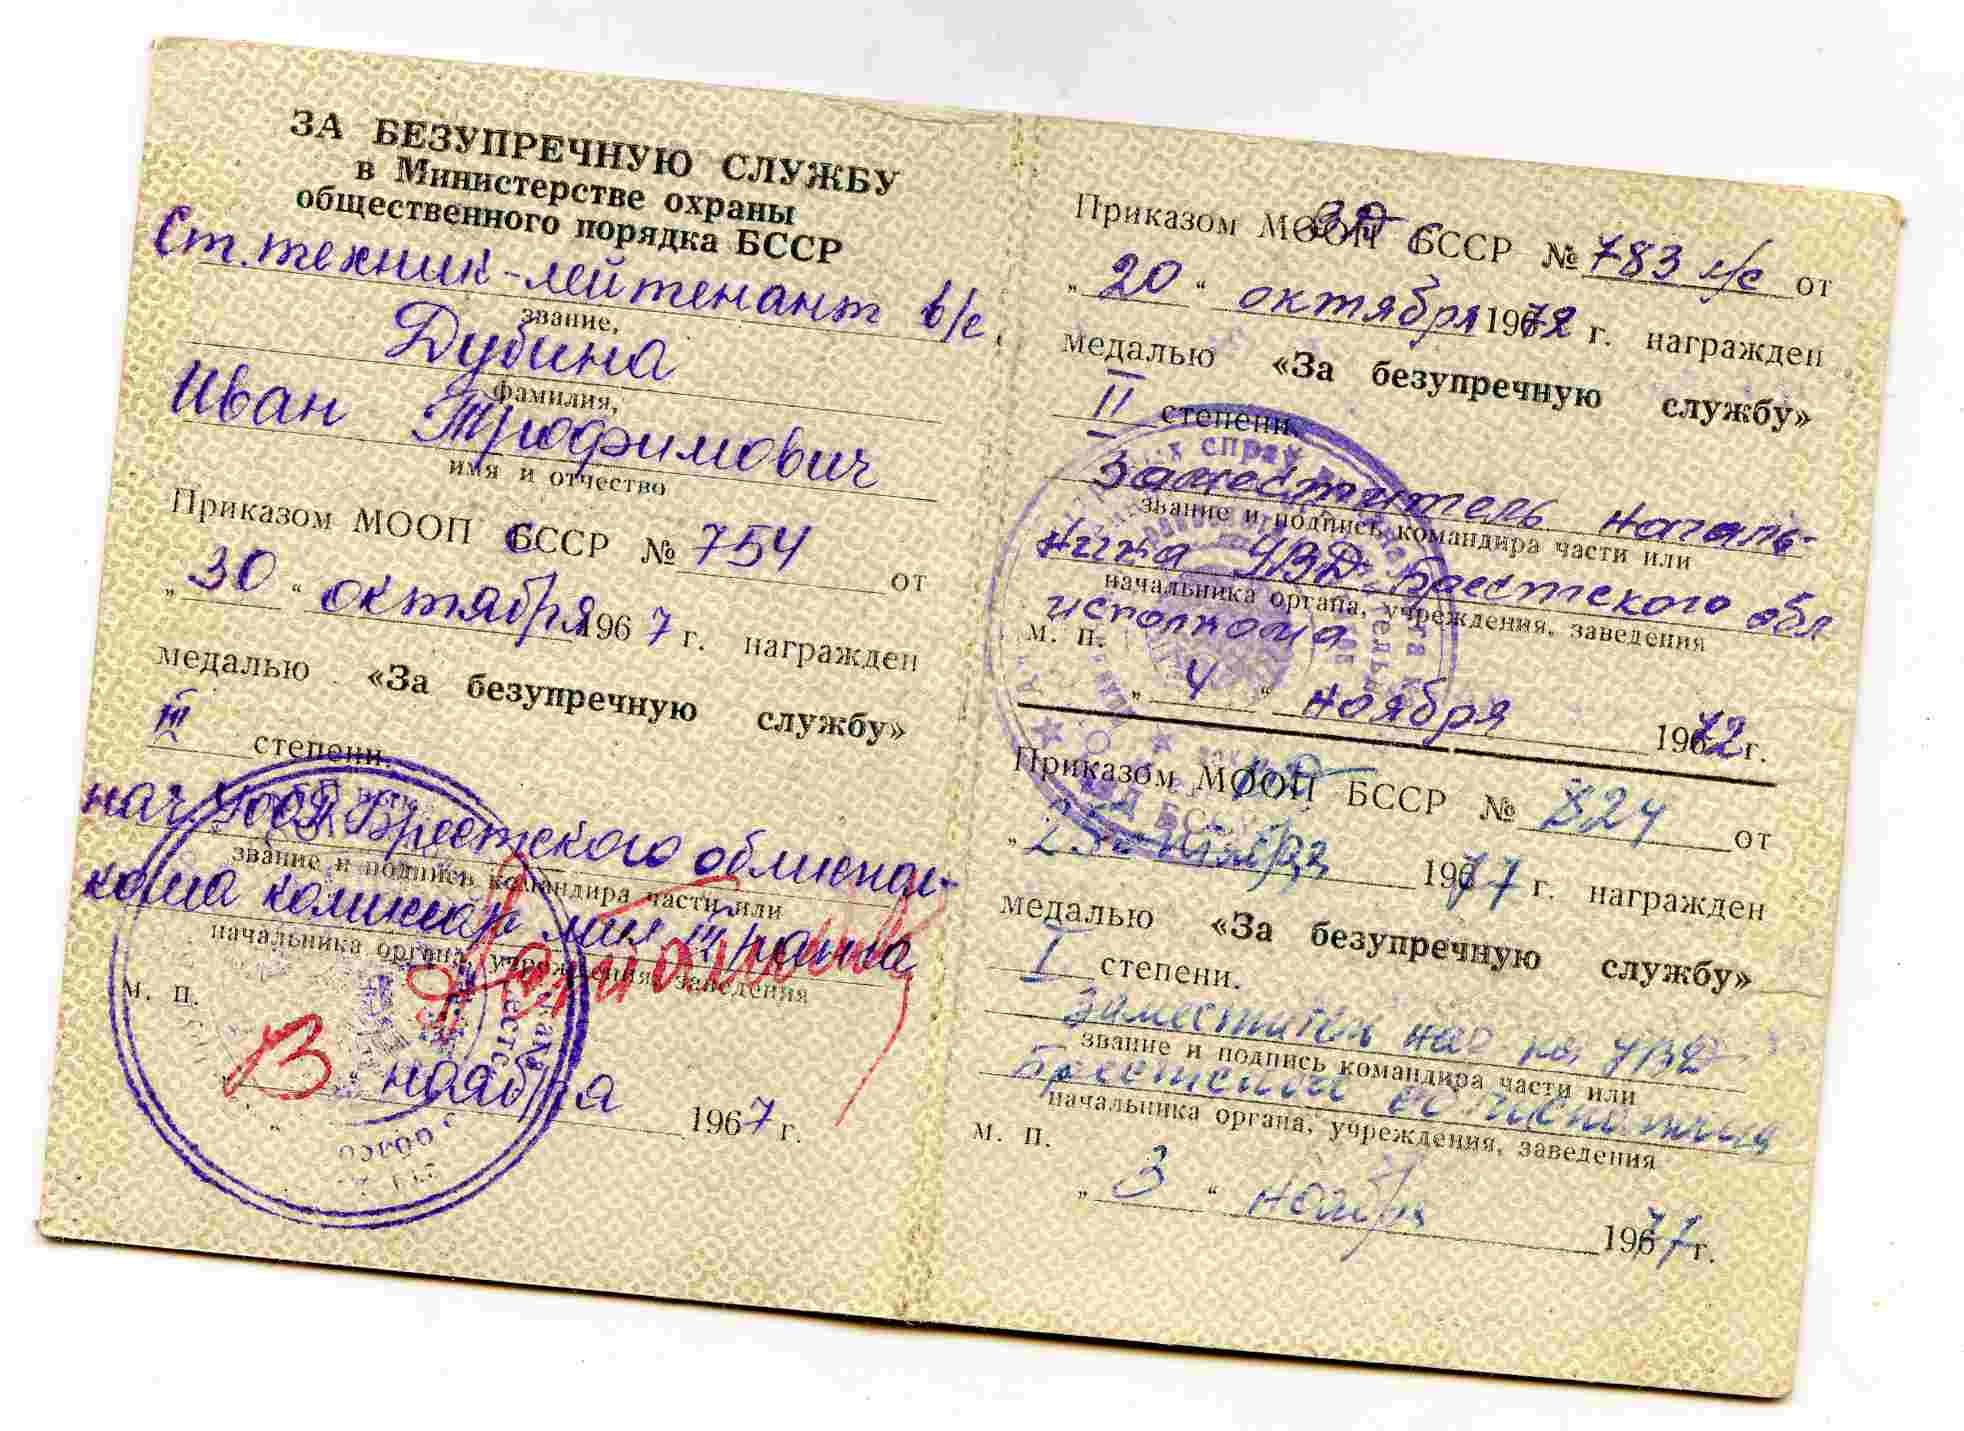 ЗА БЕЗУПРЕЧНУЮ СЛУЖБУ
в Министерстве охраны
общественного порядка БССР
Ст. техник-лейтенант в/с
звание,
Дубина
фамилия,
Иван Трофимович
имя и отчество
Приказом МООП БССР № 754 от
„30“ октября 1967 г. награжден
медалью «За безупречную службу»
III степени.
нач УООП Брестского облиспол-
звание и подпись командира части или
кома комиссар мил III ранга
начальника органа, учреждения, заведения
м. п.
ноября 1967 г.
Приказом МВД БССР № 783 л/с от
„20“ октября 1972 г. награжден
медалью «За безупречную службу»
II степени.
Заместитель началь-
звание и подпись командира части или
ника УВД Брестского обл
начальника органа, учреждения, заведения
исполкома
м. п.
„4“ ноября 1972 г.
Приказом МВД БССР № 824 от
„25“ 1977 г. награжден
медалью «За безупречную службу»
I степени.
Заместитель УВД
звание и подпись командира части или
Брестского облисполкома
начальника органа, учреждения, заведения
м. п.
„3“ ноября 1977 г.